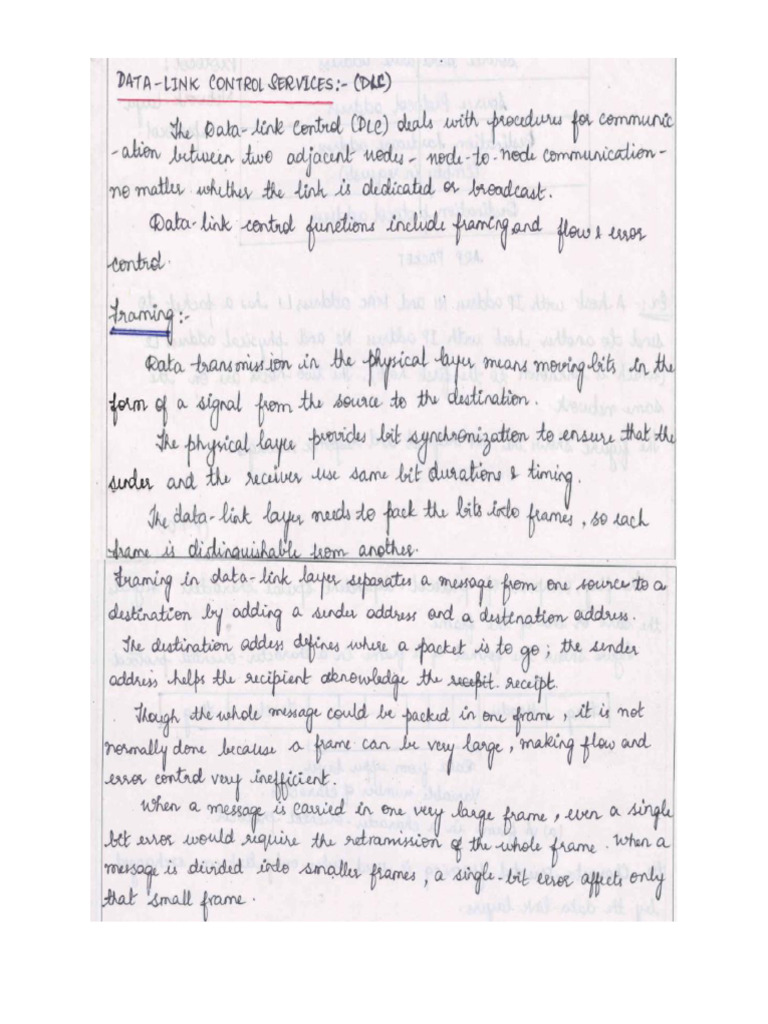 DATA-LINK CONTROL SERVICES:- (DLC)
The Data-link Control (DLC) deals with procedures for communic
-ation between two adjacent nodes - node-to-node communication-
no matter whether the link is dedicated or broadcast.
Data-link control functions include framing and flow & error
control.
Framing:-
Data transmission in the physical layer means moving bits in the
form of a signal from the source to the destination.
The physical layer provides bit synchronization to ensure that the
sender and the receiver use same bit durations & timing.
The data-link layer needs to pack the bits into frames, so each
frame is distinguishable from another.
Framing in data-link layer separates a message from one source to a
destination by adding a sender address and a destination address.
The destination addess defines where a packet is to go; the sender
address helps the recipient acknowledge the receipt. receipt.
Though the whole message could be packed in one frame, it is not
normally done because a frame can be very large, making flow and
error control very inefficient.
When a message is carried in one very large frame, even a single
bit error would require the retramission of the whole frame. When a
message is divided into smaller frames, a single-bit error affects only
that small frame.